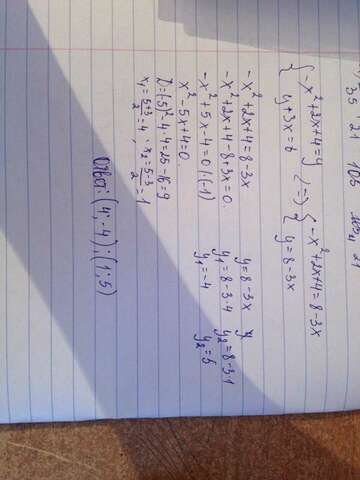 35 21 105
{ -x²+2x+4=y
y+3x=8
<=> { -x²+2x+4=8-3x
y=8-3x
-x²+2x+4=8-3x
-x²+2x+4-8+3x=0
-x²+5x-4=0 |·(-1)
x²-5x+4=0
D=(-5)²-4·4=25-16=9
x₁=5+3/2=4 ; x₂=5-3/2=1
y=8-3x
y₁=8-3·4
y₁=-4
y
y₂=8-3·1
y₂=5
Ответ: (4;-4);(1;5)